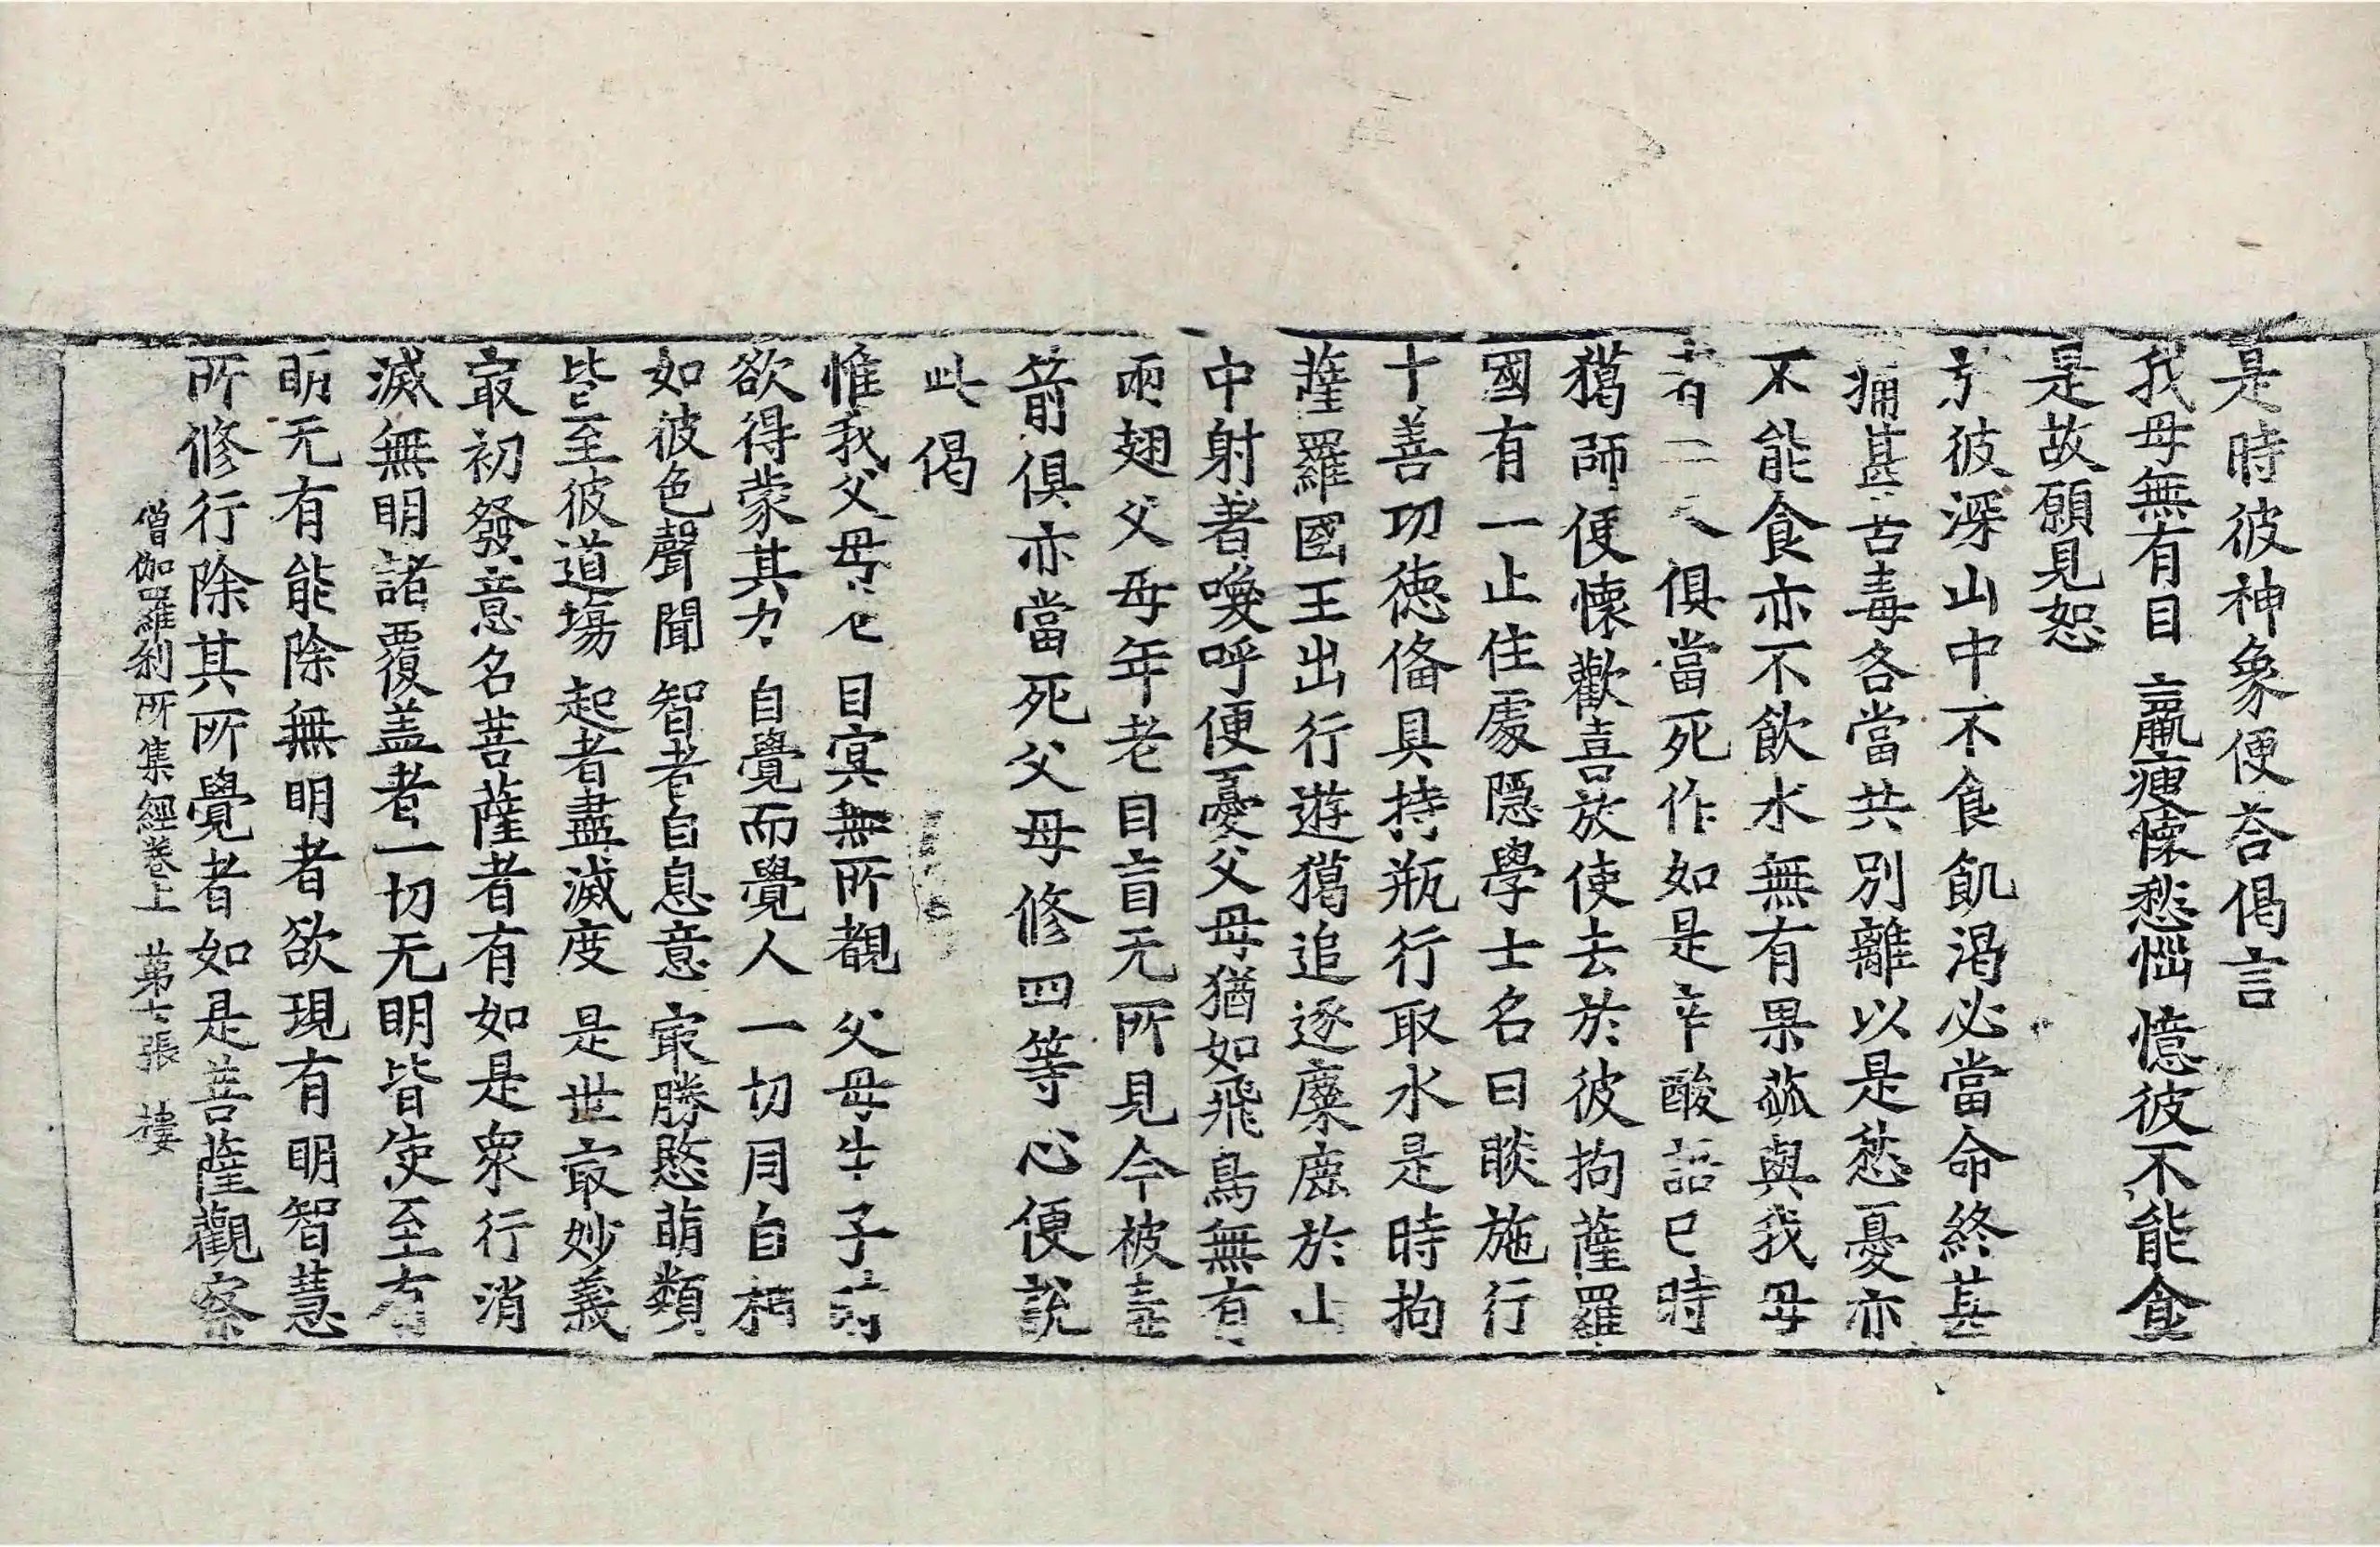 是時彼神象便荅偈言
我母無有目 羸瘦懷愁惱 憶彼不能食
是故願見恕
於彼深山中不食飢渴必當命終甚
痛甚苦毒各當共別離以是愁憂亦
不能食亦不飲水無有果蓏與我母
者二人俱當死作如是辛酸語已時
獦師便懷歡喜放使去於彼拘薩羅
國有一止住處隱學士名曰睒施行
十善功徳俻具持瓶行取水是時拘
薩羅國王出行遊獦追逐麋鹿於山
中射者喚呼便憂父母猶如飛鳥無有
兩翅父母年老目盲无所見今被毒
箭俱亦當死父母修四等心便說
此偈
惟我父母 目冥無所覩 父母生子時
欲得蒙其力 自覺而覺人 一切月自相
如彼色聲聞 智者自息意 㝡勝愍萌類
皆至彼道場 起者盡滅度 是世㝡妙義
㝡初發意名菩薩者有如是衆行消
滅無明諸覆盖者一切无明皆使至有
明无有能除無明者欲現有明智慧
所修行除其所覺者如是菩薩觀察
僧伽羅刹所集經卷上 苐七張 樓